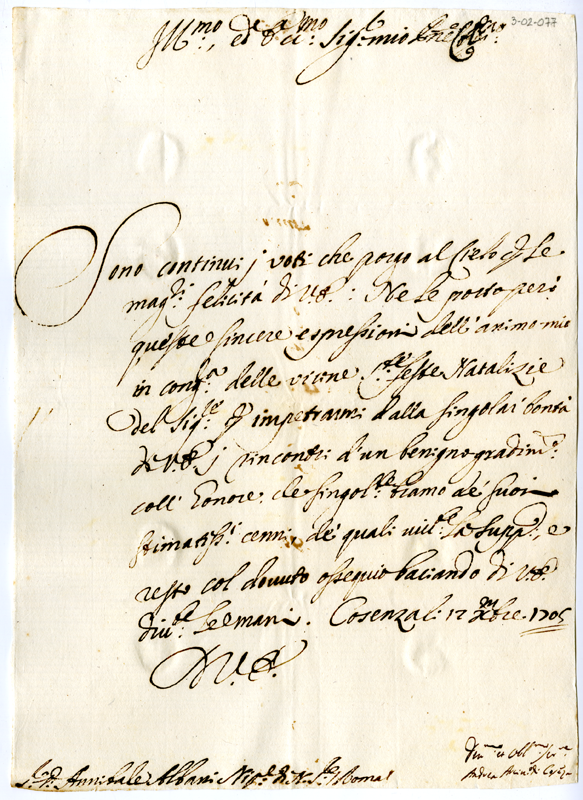 3-02-077
Ill.mo, et Sig.r mio
Sono continui j voti che porgo al Cielo p le
mag.ri felicità di V.S.: Ne le porto però
queste sincere espressioni dell'animo mio
in cong.a delle vicine S.te feste Natalizie
del Sig.re p impetrarmi dalla singolar bontà
di V.S. j rincontri d'un benigno gradim.to
coll'honore, che singol.te bramo de suoi
stimatiss.i cenni, de quali la supp.o, e
resto col dovuto ossequio baciando di V.S.
le mani. Cosenza li 12 Xbre 1705
D V.S.
S.r D. Annibale Albani Nip.e di N. S.re Roma